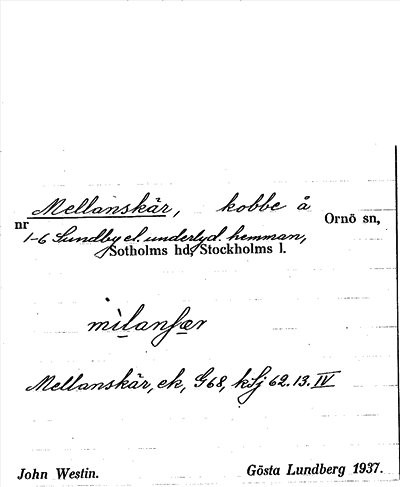 Mellanskär, kobbe å Ornö sn,
nr 1-6 Sundby el. underlyd. hemman,
Sotholms hd, Stockholms l.
Mellanskär, ek, G68, kSj 62.13. IV
John Westin. Gösta Lundberg 1937.